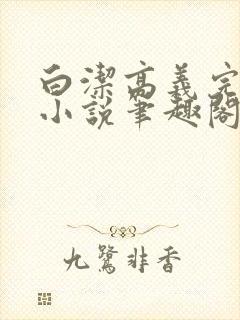 白潔高義完
小說筆趣閣
九鷺非香